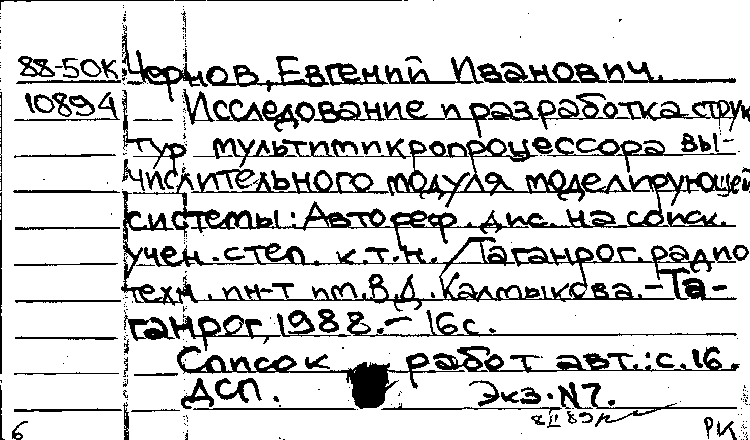 88-50К Чернов, Евгений Иванович.
10894 Исследование и разработка струк
тур мультимикропроцессора вы-
числительного модуля моделирующей
системы: Автореф. дис. на соиск.
учен. степ. к.т.н. / Таганрог. радио
техн. ин-т им. В.Д. Калмыкова. - Та-
ганрог, 1988. - 16с.
Список работ авт.: с. 16.
ДСП. Экз. N7.
6 РК